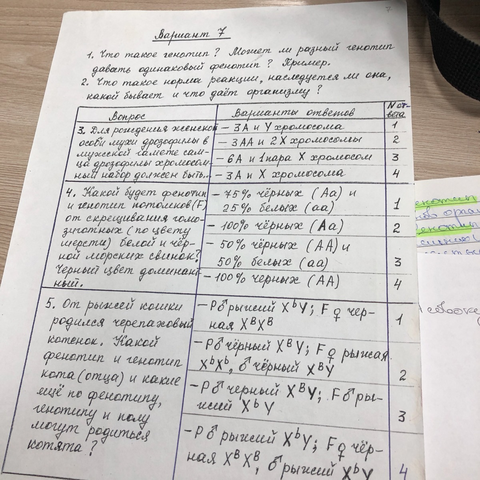 Вариант 7
1. Что такое генотип? Может ли разный генотип
давать одинаковый фенотип? Пример.
2. Что такое норма реакции, наследуется ли она,
какой бывает и что даёт организму?
Вопрос
Варианты ответов
N от-
вета
3. Для рождения женской
особи мухи дрозофилы в
мужской гамете сам-
ца дрозофилы хромосом-
ный набор должен быть...
– 3А и Y хромосома
1
– 3АА и 2X хромосомы
2
– 6А и 1 пара X хромосом
3
– 3А и X хромосома
4
4. Какой будет фенотип
и генотип потомков (F)
от скрещивания гомо-
зиготных (по цвету
шерсти) белой и чёр-
ной морских свинок?
Черный цвет доминант-
ный.
– 75% чёрных (Аа) и
25% белых (аа)
1
– 100% чёрных (Аа)
2
– 50% чёрных (АА) и
50% белых (аа)
3
– 100% черных (АА)
4
5. От рыжей кошки
родился черепаховый
котенок. Какой
фенотип и генотип
кота (отца) и какие
ещё по фенотипу,
генотипу и полу
могут родиться
котята?
– Р♂ рыжий XᵇY; F♀ чёр-
ная XᴮXᴮ
1
– Р♂ чёрный XᴮY; F♀ рыжая
XᵇXᵇ, ♂ чёрный XᴮY
2
– Р♂ черный XᴮY; F♂ ры-
жий XᵇY
3
– Р♂ рыжий XᵇY; F♀ чёр-
ная XᴮXᴮ, ♂ рыжий XᵇY
4